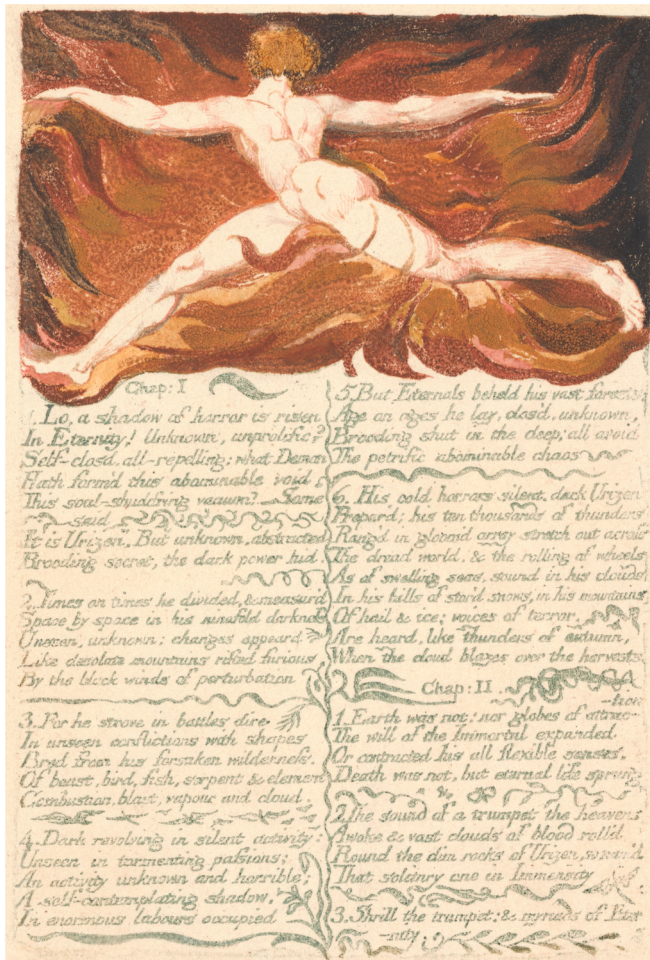 Chap: I
1. Lo, a shadow of horror is risen
In Eternity! Unknown, unprolific?
Self-closd, all-repelling; what Demon
Hath form'd this abominable void
This soul-shudd'ring vacuum? Some
said
It is Urizen, But unknown, abstracted
Brooding secret, the dark power hid.
2. Times on times he divided, & measur'd
Space by space in his ninefold darkness
Unseen, unknown; changes appeard
Like desolate mountains rifted furious
By the black winds of perturbation
3. For he strove in battles dire
In unseen conflictions with shapes
Bred from his forsaken wilderness.
Of beast, bird, fish, serpent & element
Combustion, blast, vapour and cloud.
4. Dark revolving in silent activity:
Unseen in tormenting passions;
An activity unknown and horrible;
A self-contemplating shadow,
In enormous labours occupied
5. But Eternals beheld his vast forests
Age on ages he lay, closd, unknown,
Brooding shut in the deep; all avoid
The petrific abominable chaos
6. His cold horrors silent, dark Urizen
Prepar'd; his ten thousands of thunders
Rang'd in gloom'd array stretch out across
The dread world, & the rolling of wheels
As of swelling seas, sound in his clouds
In his hills of stor'd snows, in his mountains
Of hail & ice; voices of terror,
Are heard, like thunders of autumn,
When the cloud blazes over the harvests
Chap: II
1. Earth was not: nor globes of attrac-
-tion
The will of the Immortal expanded
Or contracted his all flexible senses.
Death was not, but eternal life sprung
2. The sound of a trumpet the heavens
Awoke & vast clouds of blood roll'd
Round the dim rocks of Urizen, so nam'd
That solitary one in Immensity
3. Shrill the trumpet: & myriads of Eter
-nity;